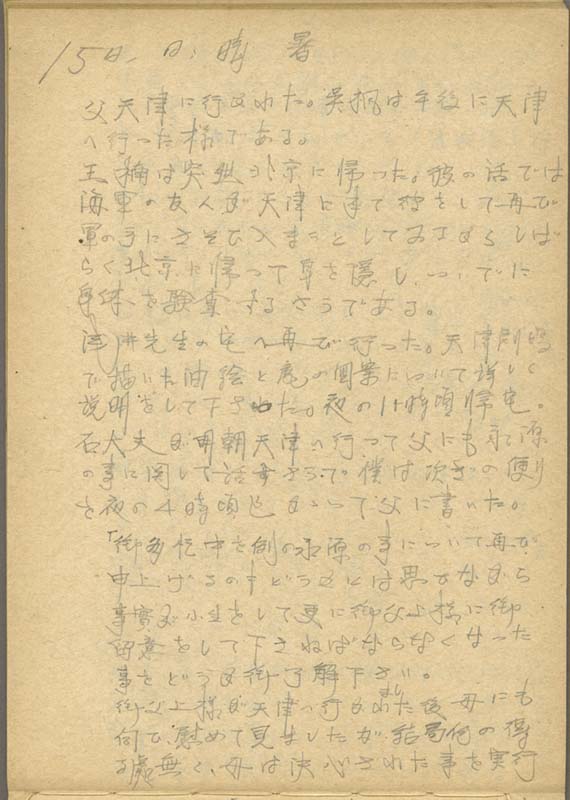 15日、日、晴 暑
父天津に行かれた。吳桐は午後に天津
へ行った様である。
王楠は突然北京に帰った。彼の話では
海軍の友人が天津に来て彼をして再び
軍の手にさそひ入まうとしてゐるからしば
らく北京に帰って身を隠し、ついでに
身体を験査するさうである。
先生の宅へ再び行った。天津
で描いた油絵と の個業について詳しく
説明をして下さった。夜の11時頃帰宅。
石大夫が明朝天津へ行って父にも永源
の事に関して話すさうで。僕は次ぎの便り
を夜の4時頃迄かゝって父に書いた。
「御多忙中を例の永源の事について再び
申上げるの中どうかとは思ひながら
事實が小生をして更に御父上様に御
留意をして下さねばならなくなった
事をどうか御了解下さい。
御父上様が天津へ行かれました後母にも
何で、慰めて見ましたが、結局何の得
る處無く、母は決心された事を実行